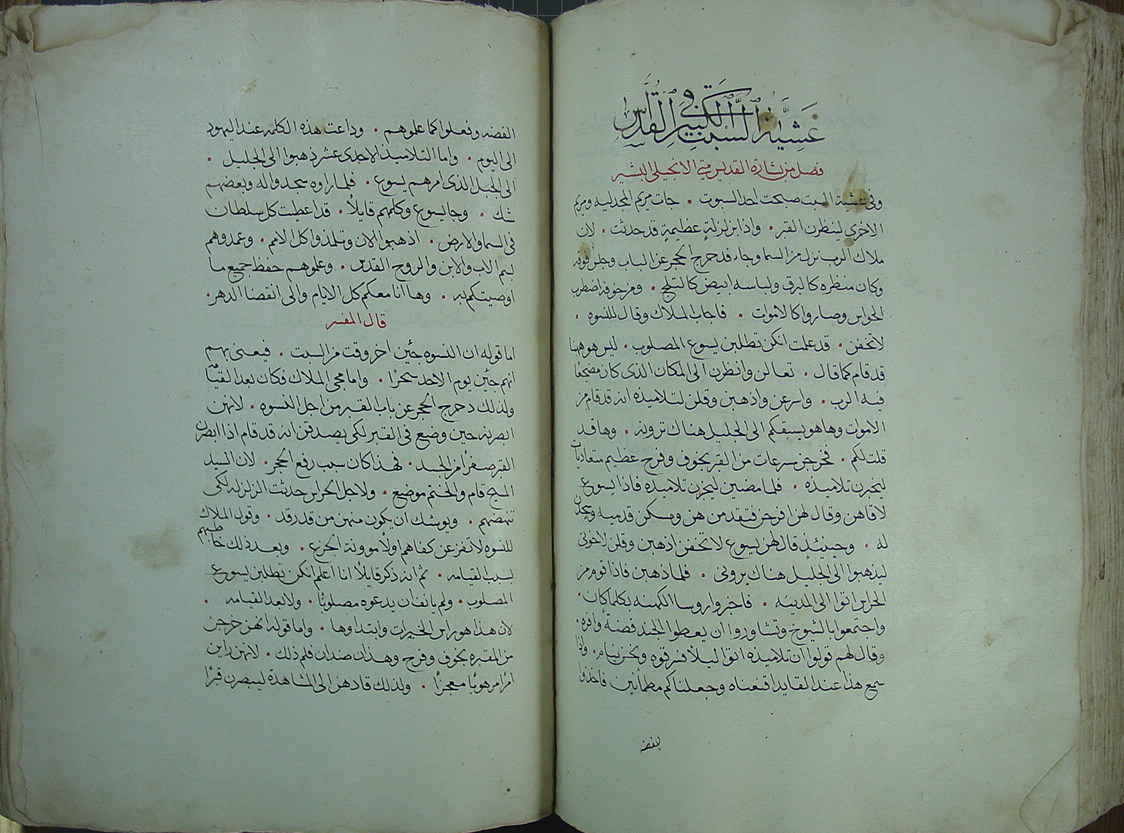 عَشِيَّة السَّبت الكَبير في القُدَّاس
فصل من بشارة القديس متي الانجيلي البشير
وفي عشية السبت صبحت احد السبوت • جات مريم المجدليه ومريم
الاخري لينظرن القبر • واذا بزلزلةٍ عظيمةٍ قد حدثت • لان
ملاك الرب نزل من السما وجاء قد حرج الحجر عن الباب وجلس فوقه
وكان منظره كالبرق ولباسه ابيض كالثلج • ومن خوفه اضطرب
الحراس وصاروا كالاموات • فاجاب الملاك وقال للنسوه •
لاتخفن • قد علمت انكن تطلبن يسوع المصلوب • ليس هو هاهنا
قد قام كما قال • تعالن وانظرن الى المكان الذى كان مضجعًا
فيه الرب • واسرعن واذهبن وقلن لتلاميذه انه قد قام من
الاموات وها هو يسبقكم الى الجليل هناك ترونه • وها قد
قلت لكم • فخرجن مسرعات من القبر بخوف وفرح عظيم متعاديات
ليخبرن تلاميذه • فلما مضين ليخبرن تلاميذه فاذا يسوع
لاقاهن وقال لهن افرحن فتقدمن هن ومسكن قدميه وسجدن
له • وحينئذٍ قال لهن يسوع لاتخفن اذهبن وقلن لاخوتي
ليذهبوا الى الجليل هناك يروني • فلما ذهبن فاذا قوم من
الحراس اتوا الى المدينه • فاخبروا روسا الكهنه بكلما كان •
واجتمعوا بالشيوخ وتشاوروا ان يعطوا الجند فضةً وافره •
وقال لهم قولوا ان تلاميذه اتوا ليلاً سرقوه ونحن نيام • واذا
سمع هذا عند القايد اقنعناه وجعلناكم مطمانين فاخذوا
الفضه وفعلوا كما علموهم • وذاعت هذه الكلمه عند اليهود
الى اليوم • واما التلاميذ الاحدى عشر ذهبوا الى الجليل •
الى الجبل الذى امرهم يسوع • فلما راوه سجدوا له وبعضهم
شك • وجا يسوع وكلمهم قايلاً • قد اعطيت كل سلطان
في السما والارض • اذهبوا الان وتلمذوا كل الامم • وعمدوهم
بسم الاب والابن والروح القدس • وعلموهم حفظ جميع ما
اوصيتكم به • وها انا معكم كل الايام والى انقضا الدهر •
قال المفسر
اما قوله ان النسوه جئين اخر وقت من السبت • فيعنى بهم
انهم جئين يوم الاحد سحرًا • واما مجى الملاك فكان بعد القيامه
ولذلك دحرج الحجر عن باب القبر من اجل النسوه • لانهن
ابصرنه حين وضع في القبر لكي يصدقن انه قد قام اذا ابصرن
القبر صفرًا من الجسد • فهذا كان سبب رفع الحجر • لان السيد
المسيح قام والختم موضوع • ولاجل الحراس حدثت الزلزله لكى
تنهضهم • ويوشك ان يكون منهن من قد رقد • وقول الملاك
للنسوه لاتفزعن كفاهم اولاً موونة الجزع • وبعد ذلك خاطبهم
بسبب القيامه • ثم انه ذكر قايلاً انا اعلم انكن تطلبن يسوع
المصلوب • ولم يانف ان يدعوه مصلوبًا • ولا بعد القيامه •
لان هذا هو راس الخيرات وابتداوها • واما قوله انهن خرجن
من المقبره بخوف وفرح وهذان ضدان فلم ذلك • لانهن راين
امرًا مرهوبًا معجزًا • ولذلك قادهن الى المشاهده ليبصرن قبرًا